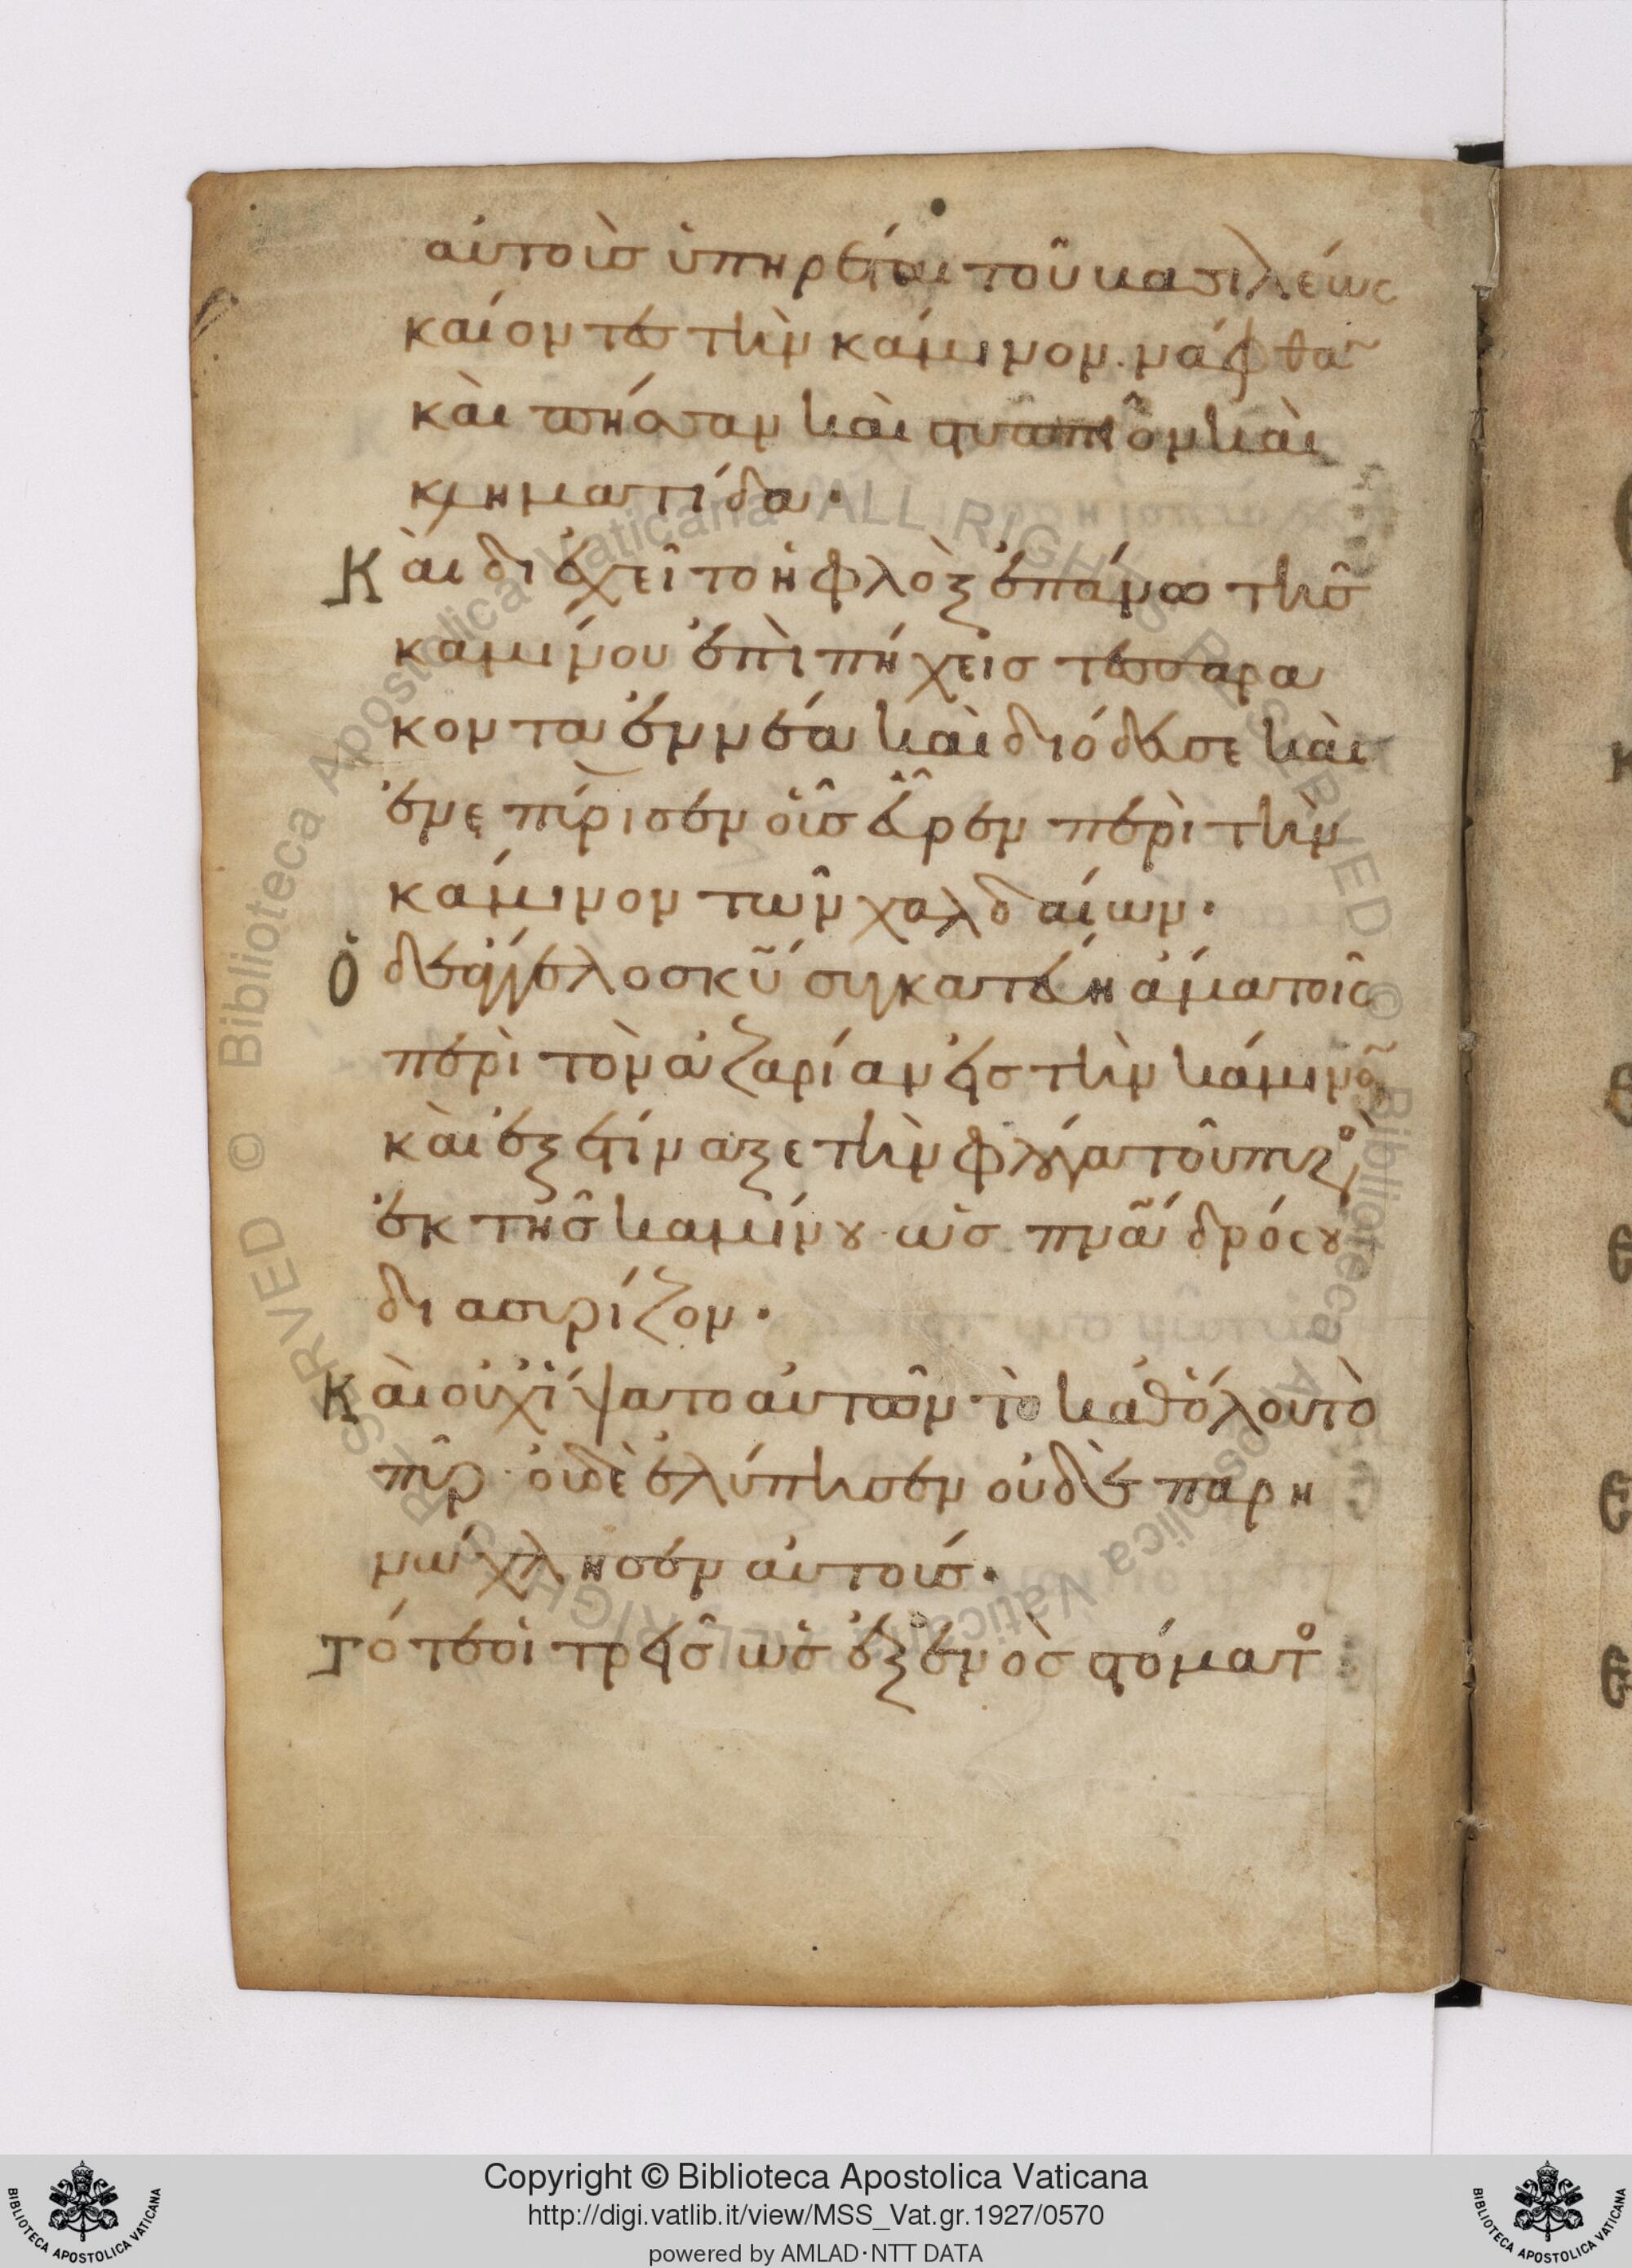 αὐτοὺσ ὑπηρέται τοῦ βασιλέως
καίοντες τὴν κάμινον· νάφθα̅
καὶ πήσσαν καὶ στυππίον καὶ
κληματίδα·
Καὶ διεχεῖτο ἡ φλὸξ ἐπάνω τῆσ
καμίνου ἐπὶ πήχεισ τεσσαρα
κονταεννέα καὶ διόδευσε καὶ
ἐνεπύρισεν οὓσ εὗρεν περὶ τὴν
κάμινον τῶν χαλδαίων·
Ὁ δὲ ἄγγελοσ κ̅υ̅ συγκατέβη ἅμα τοῖσ
περὶ τὸν ἀζαρίαν εἰσ τὴν κάμινο̅
καὶ ἐξετίναξε τὴν φλόγα τοῦ πυρο
ἐκ τῆσ καμίνου· ὡσ π̅ν̅α̅ δρόσου
διασυρίζον·
Καὶ οὐχ ἥψατο αὐτῶν τὸ καθόλου τὸ
πῦρ· οὐδὲ ἐλύπησεν οὐδὲ παρη
νώχλησεν αὐτούσ·
Τότε οἱ τρεῖσ ὡσ ἐξ ἑνὸσ στόματο
Copyright © Biblioteca Apostolica Vaticana
http://digi.vatlib.it/view/MSS_Vat.gr.1927/0570
powered by AMLAD·NTT DATA
BIBLIOTECA APOSTOLICA VATICANA
BIBLIOTECA APOSTOLICA VATICANA